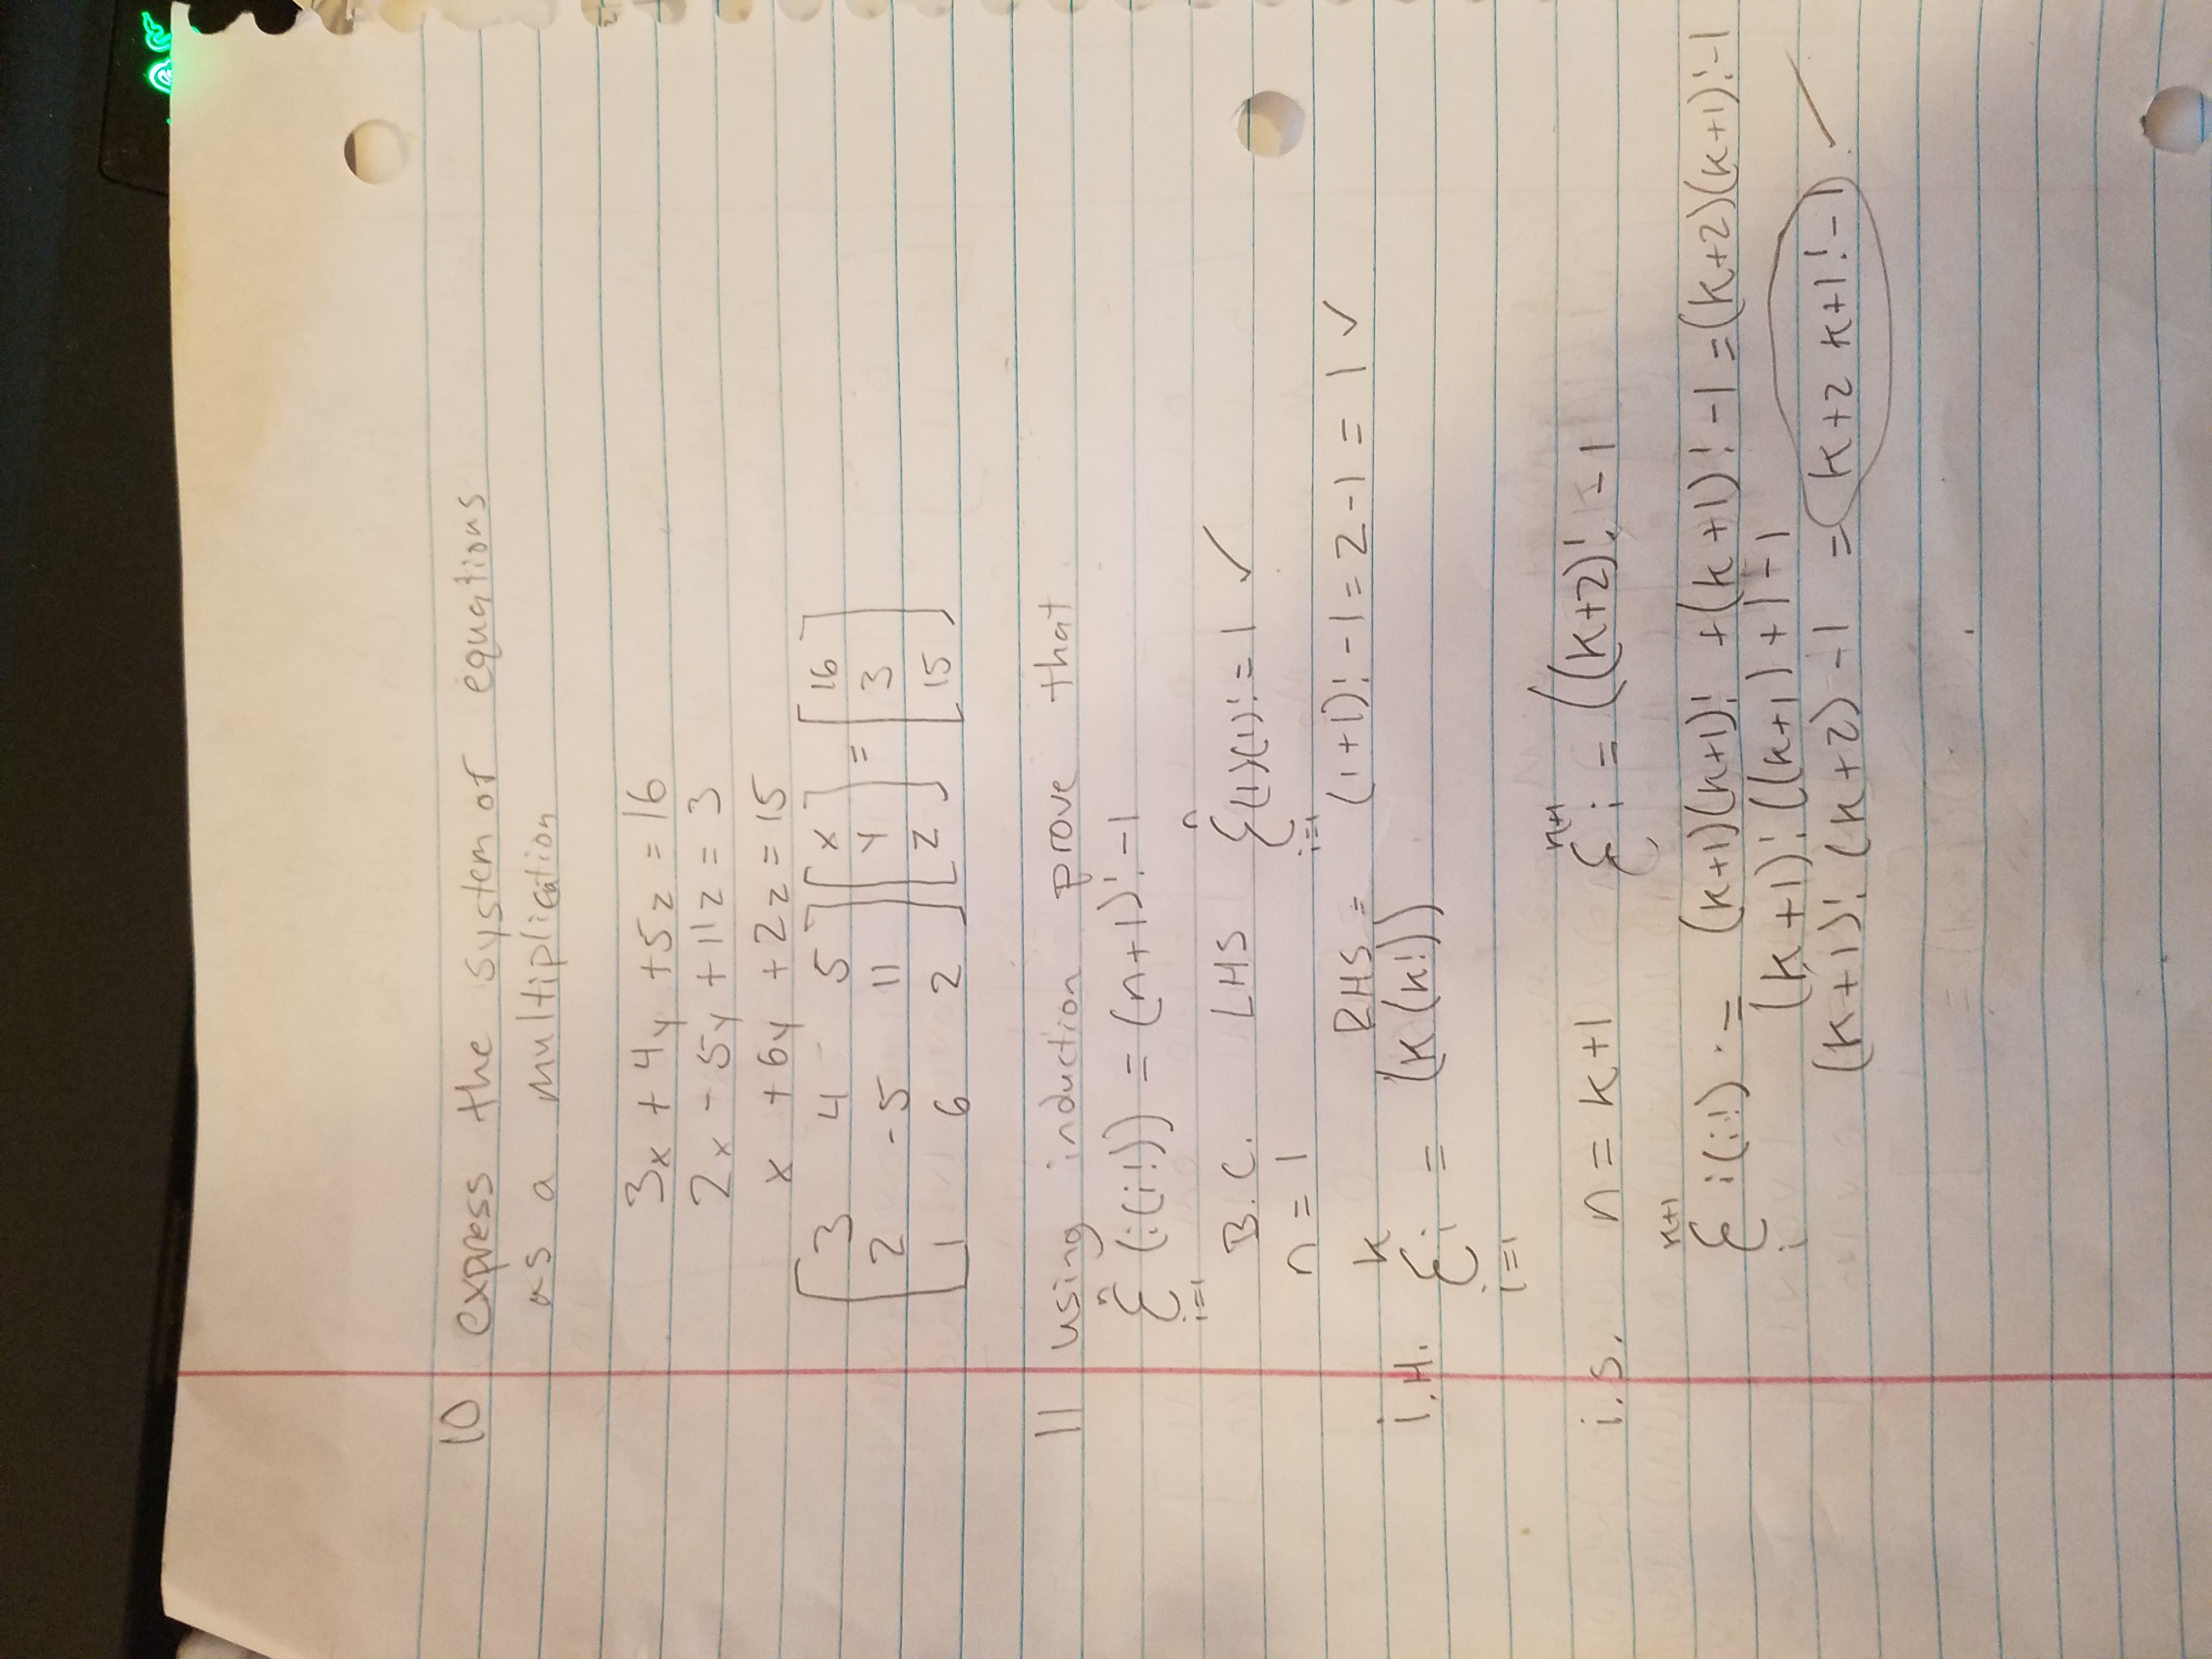 10 express the system of equations
as a multiplication
3x + 4y + 5z = 16
2x - 5y + 11z = 3
x + 6y + 2z = 15
[3 4 5] [x] = [16]
[2 -5 11] [y] [3]
[1 6 2] [z] [15]
11 using induction prove that
n
Σ (i(i!)) = (n+1)! - 1
i=1
B.C. LHS n Σ i=1 (1)(1)! = 1 ✓
n = 1
RHS = (1+1)! - 1 = 2 - 1 = 1 ✓
k
i.H. Σ i = (k(k!))
i=1
i.s. n = k+1 n+1 Σ i = ((k+2)! - 1
k+1
Σ i(i!) = (k+1)(k+1)! + (k+1)! - 1 = (k+2)(k+1)! - 1
i (k+1)! ((k+1) + 1 - 1
(k+1)! (k+2) - 1 = k+2 k+1! - 1 ✓